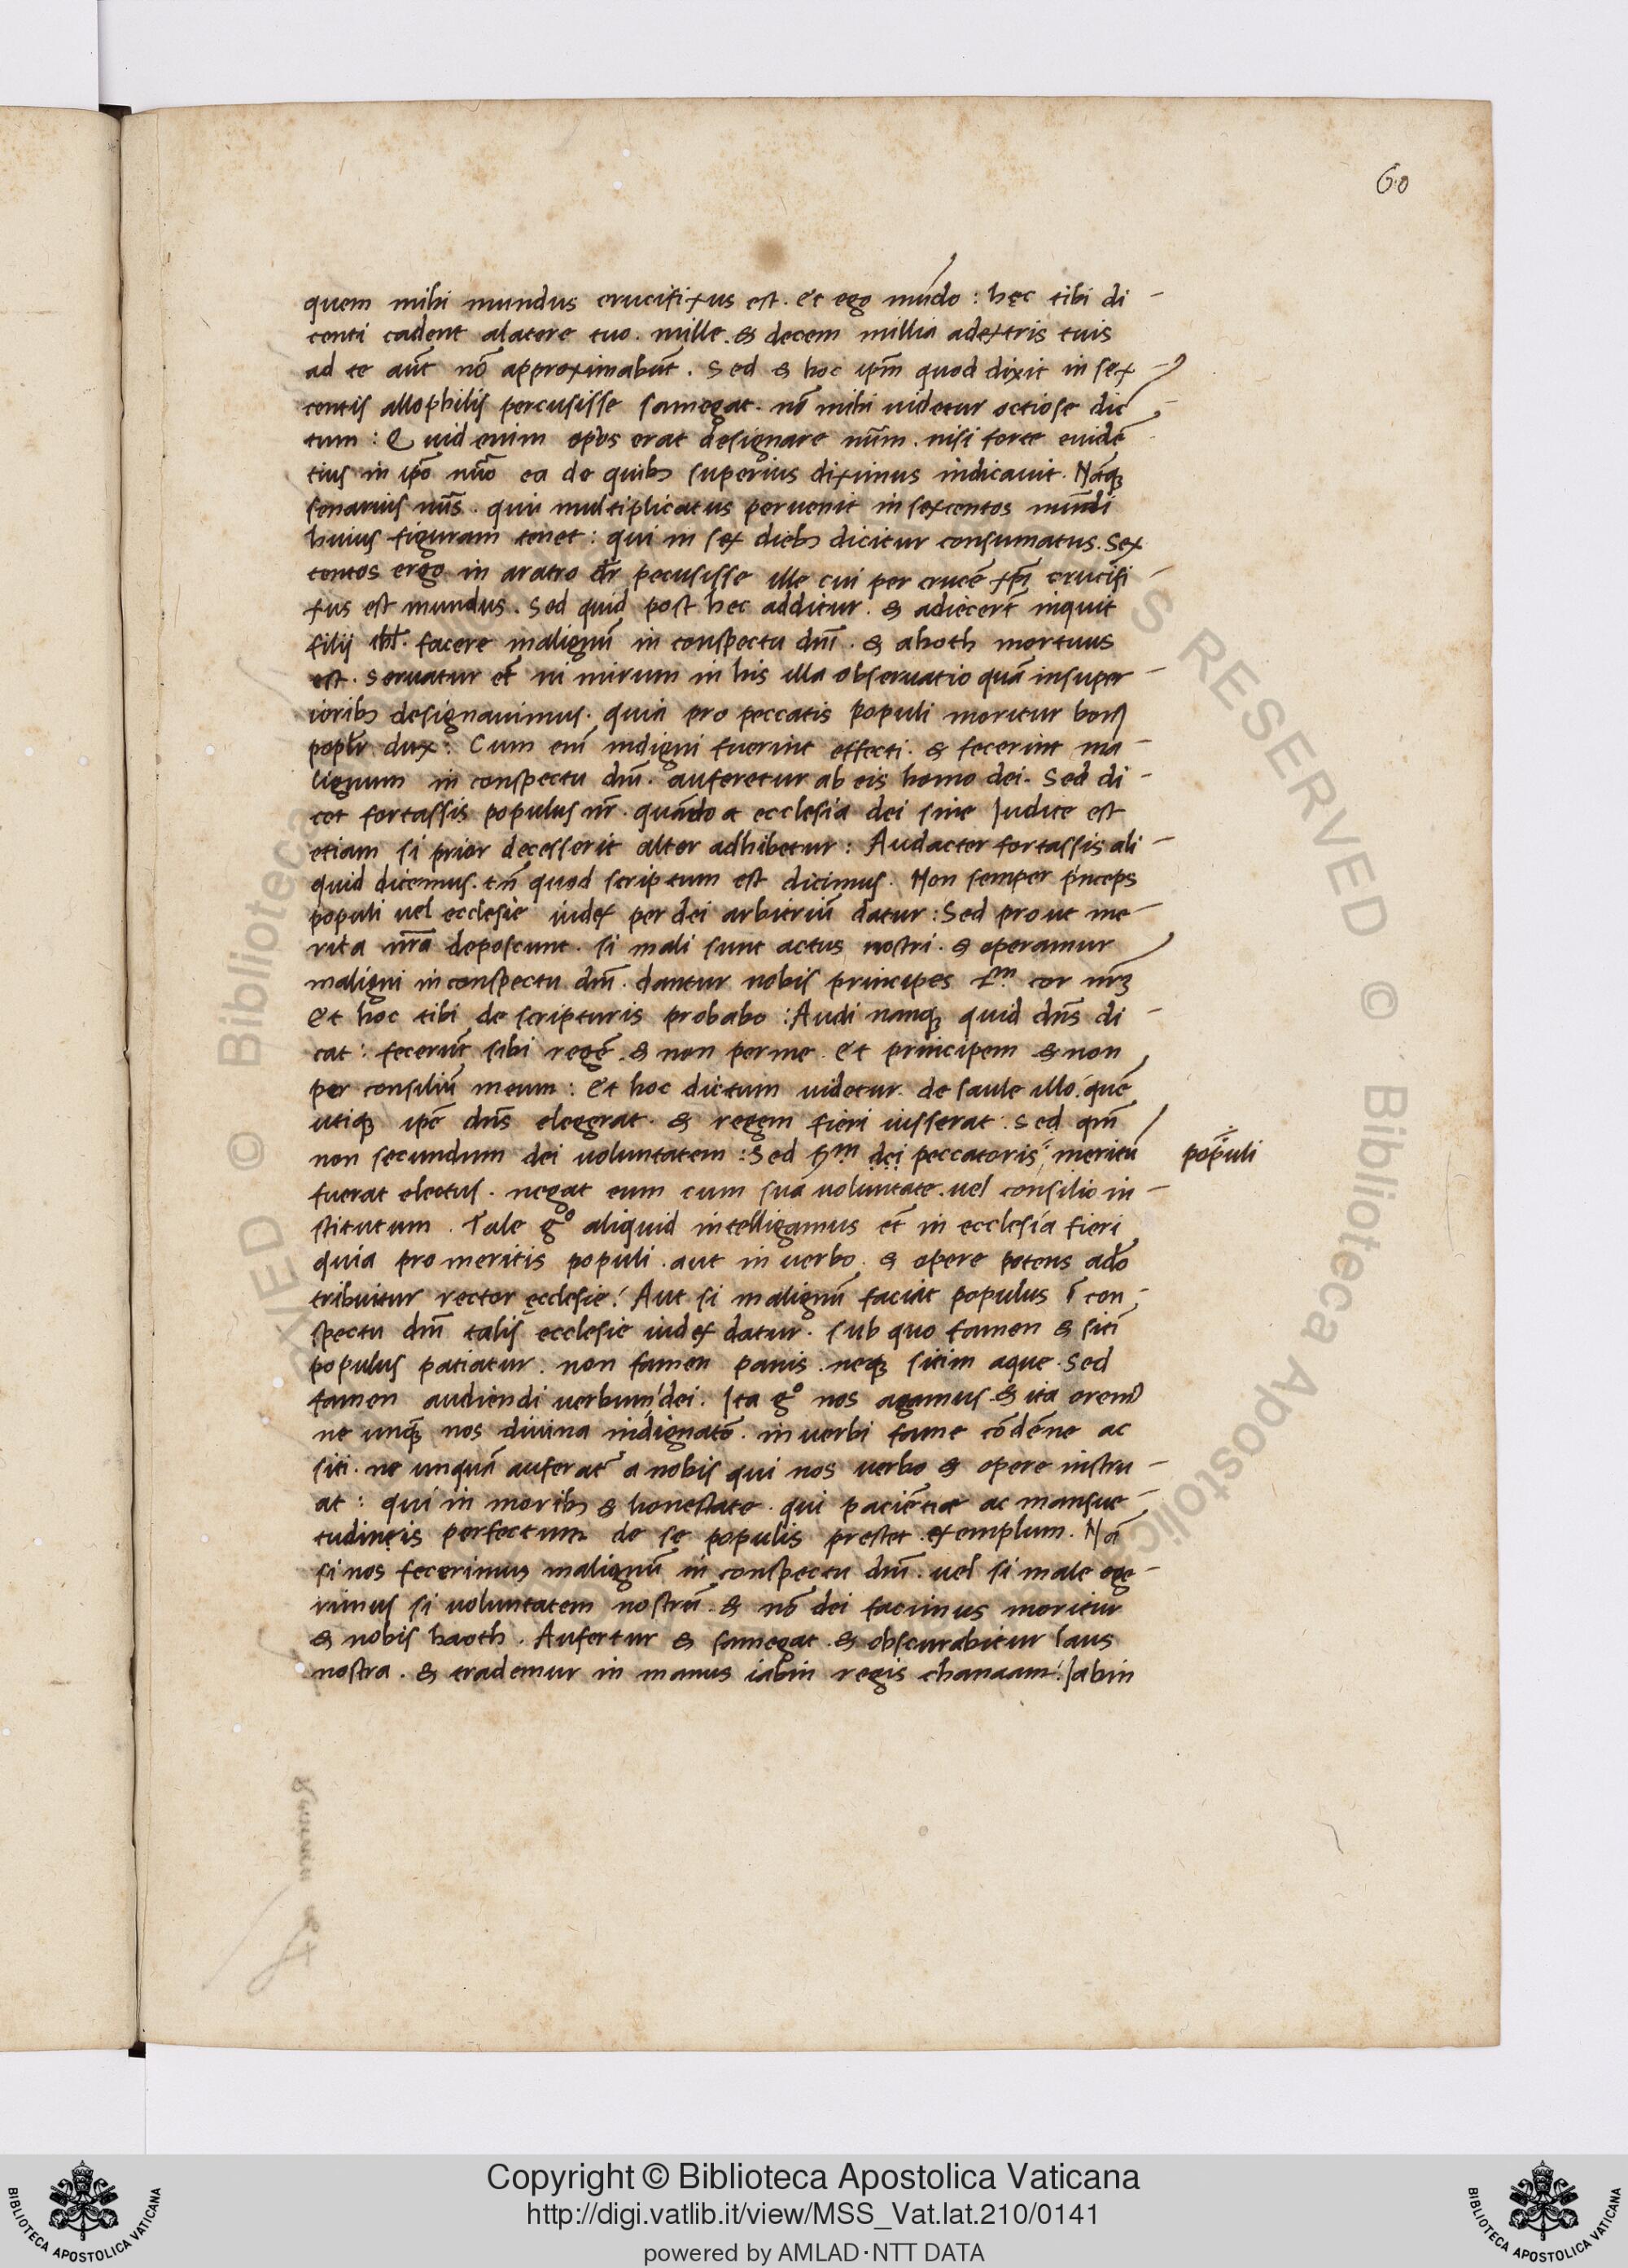 60
quem mihi mundus crucifixus est. et ego mūdo : hęc tibi di-
centi cadent alatere tuo. mille. & decem millia adextris tuis
ad te aūt nō approximabūt. Sed & hoc ipm̄ quod dixit in sex
centis allophilis percusisse samegat. nō mihi uidetur octiose dic
tum : Quid enim opus erat designare nūm. nisi forte euidē
tius in ipō nūo ea de quibꝫ superius diximus indicauit. Nāqꝫ
senarius nūs. qui multiplicatus peruenit in sexcentos mundi
huius figuram tenet : qui in sex diebꝫ dicitur consumatus. Sex
centos ergo in aratro dr̄ pecusisse ille cui per crucē xp̄i crucifi-
xus est mundus. Sed quid post hec additur. & adiecert̄ inquit
filij isrl̄. facere malignū in conspectu dnī. & ahoth mortuus
est. Seruatur et̄ ni mirum in his illa obseruatio quā insuper-
ioribꝫ designauimus. quia pro peccatis populi moritur bonꝰ
popl̄i dux : Cum enī indigni fuerint effecti. & fecerint ma-
lignum in conspectu dnī. auferetur ab eis homo dei. Sed di-
cet fortassis populus nr̄. quando a ecclesia dei sine Iudice est
etiam si prior decesserit alter adhibetur : Audacter fortassis ali-
quid dicemus. tn̄ quod scriptum est dicimus. Non semper p̄nceps
populi uel ecclesie iudex per dei arbitriū datur : Sed prout me-
rita nr̄a deposcunt. si mali sunt actus nostri. & operamur
maligni in conspectu dnī. dantur nobis principes sᵐ cor nr̄ꝫ
Et hoc tibi de scripturis probabo : Audi nanqꝫ quid dn̄s di-
cat : fecerūt sibi regē. & non per me. et principem & non
per consiliū meum : Et hoc dictum uidetur. de saule illo. quē
utiqꝫ ipē dn̄s elegerat. & regem fieri iusserat. Sed qm̄
non secundum dei uoluntatem : Sed sᵐ dei peccatoris meritū
populi
fuerat electus. negat eum cum sua uoluntate. uel consilio in-
stitutum. Tale gº aliquid intelligamus et̄ in ecclesia fieri
quia pro meritis populi. aut in uerbo. & opere potens a dō
tribuitur rector ęcclesie : Aut si malignū faciat populus ī con-
spectu dnī talis ecclesie iudex datur. sub quo famen & sitī
populus patiatur. non famen panis. neqꝫ sitim aque. Sed
famen audiendi uerbum dei. Ita gº nos agamus. & ita orem⁹
ne unqꝫ nos diuina indignatō. in uerbi fame cōdēne ac
siti. ne unquā auferat̄ a nobis qui nos uerbo & opere instru-
at : qui in moribꝫ & honestate. qui paciētie ac mansue-
tudineis perfectum de se populis prestet exemplum. Nā
si nos fecerimus malignū in conspectu dnī. uel si male ege-
rimus si uoluntatem nostrā. & nō dei facimus moritur
& nobis haoth. Aufertur & samegat. & obscurabitur laus
nostra. & trademur in manus iabin regis chanaam : Iabin
Copyright © Biblioteca Apostolica Vaticana
http://digi.vatlib.it/view/MSS_Vat.lat.210/0141
powered by AMLAD·NTT DATA
BIBLIOTECA APOSTOLICA VATICANA
BIBLIOTECA APOSTOLICA VATICANA